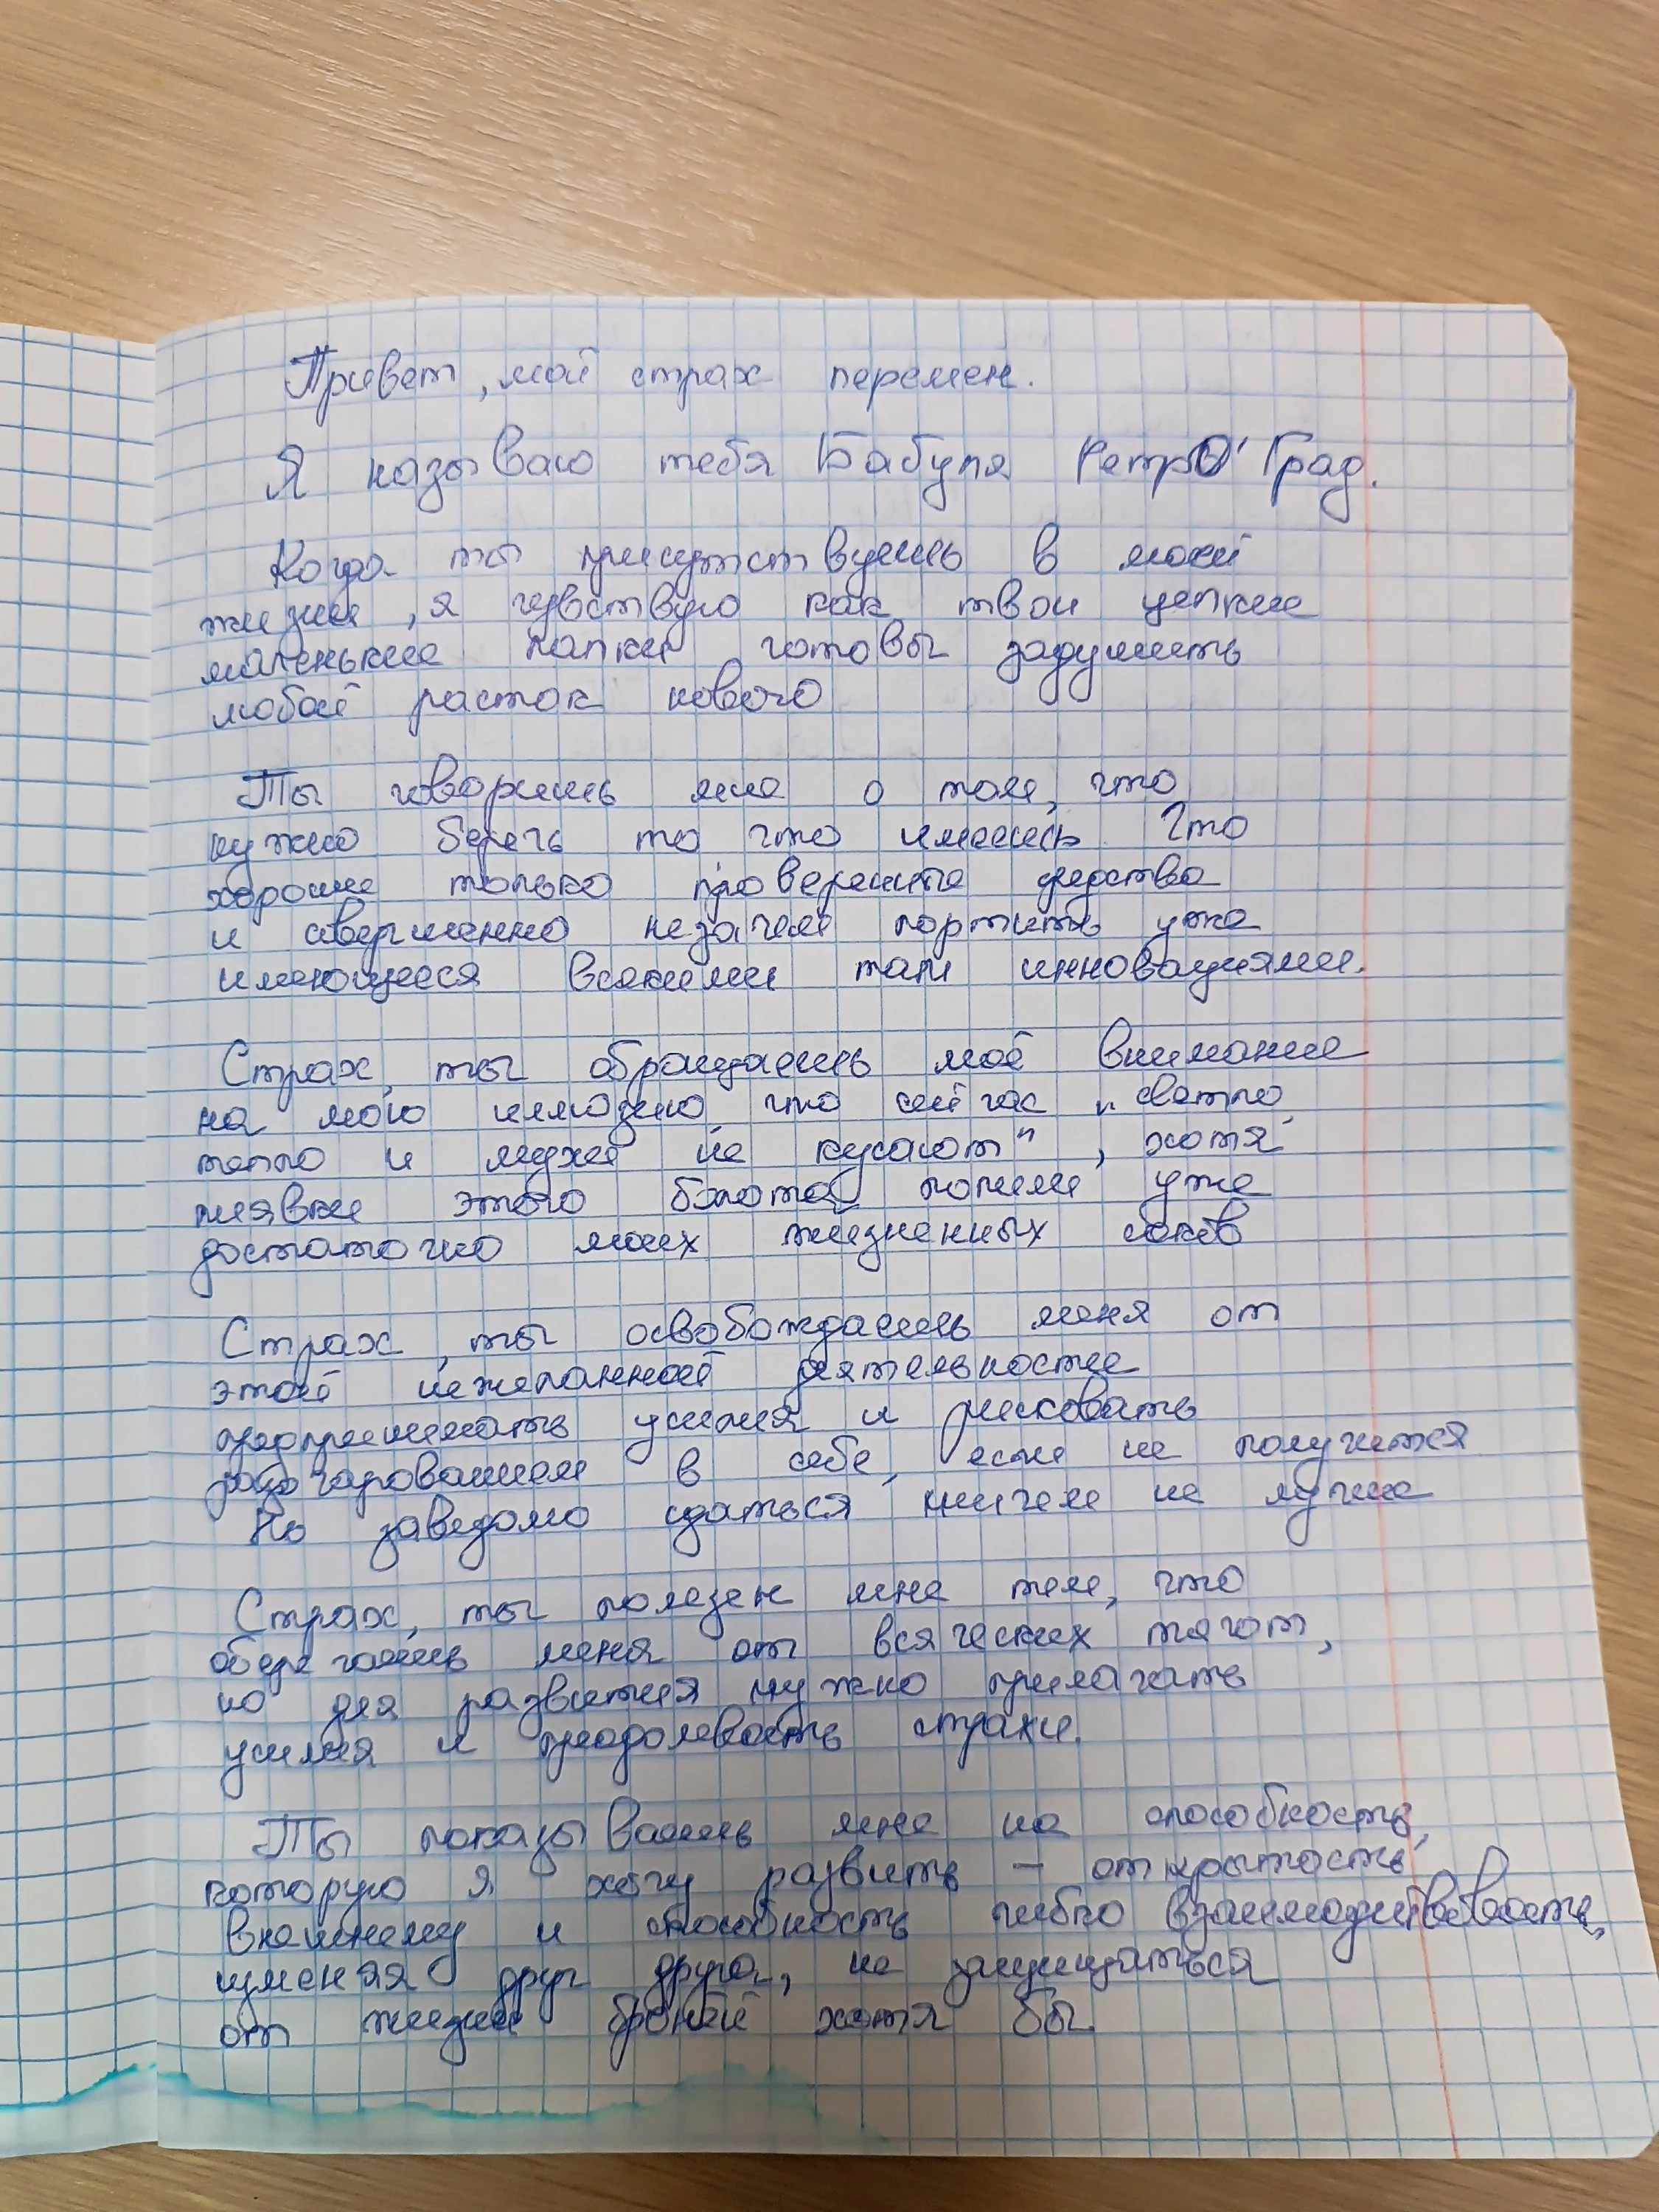 Привет, мой страх перемен.
Я называю тебя Бабуля РетрО' Град.
Когда ты присутствуешь в моей
жизни, я чувствую как твои цепкие
маленькие лапки готовы задушить
любой расток нового
Ты говоришь мне о том, что
нужно беречь то что имеешь. Что
хороши только проверенные средства
и совершенно незачем портить уже
имеющееся всякими там инновациями.
Страх, ты обращаешь моё внимание
на мою иллюзию, что сейчас "светло,
тепло и мухи не кусают", хотя
пиявки этого болота попили уже
достаточно моих жизненных соков
Страх, ты освобождаешь меня от
этой нежеланной деятельности
предпринимать усилия и рисковать
разочарованием в себе, если не получится
Но заведомо сдаться ничем не лучше
Страх, ты полезен мне тем, что
оберегаешь меня от всяческих тягот,
но для развития нужно прилагать
усилия и преодолевать страхи.
Ты показываешь мне на способность,
которую я хочу развить - открытость
внешнему и способность гибко взаимодействовать,
изменяя друг друга, не защищаться
от жизни бронёй хотя бы.